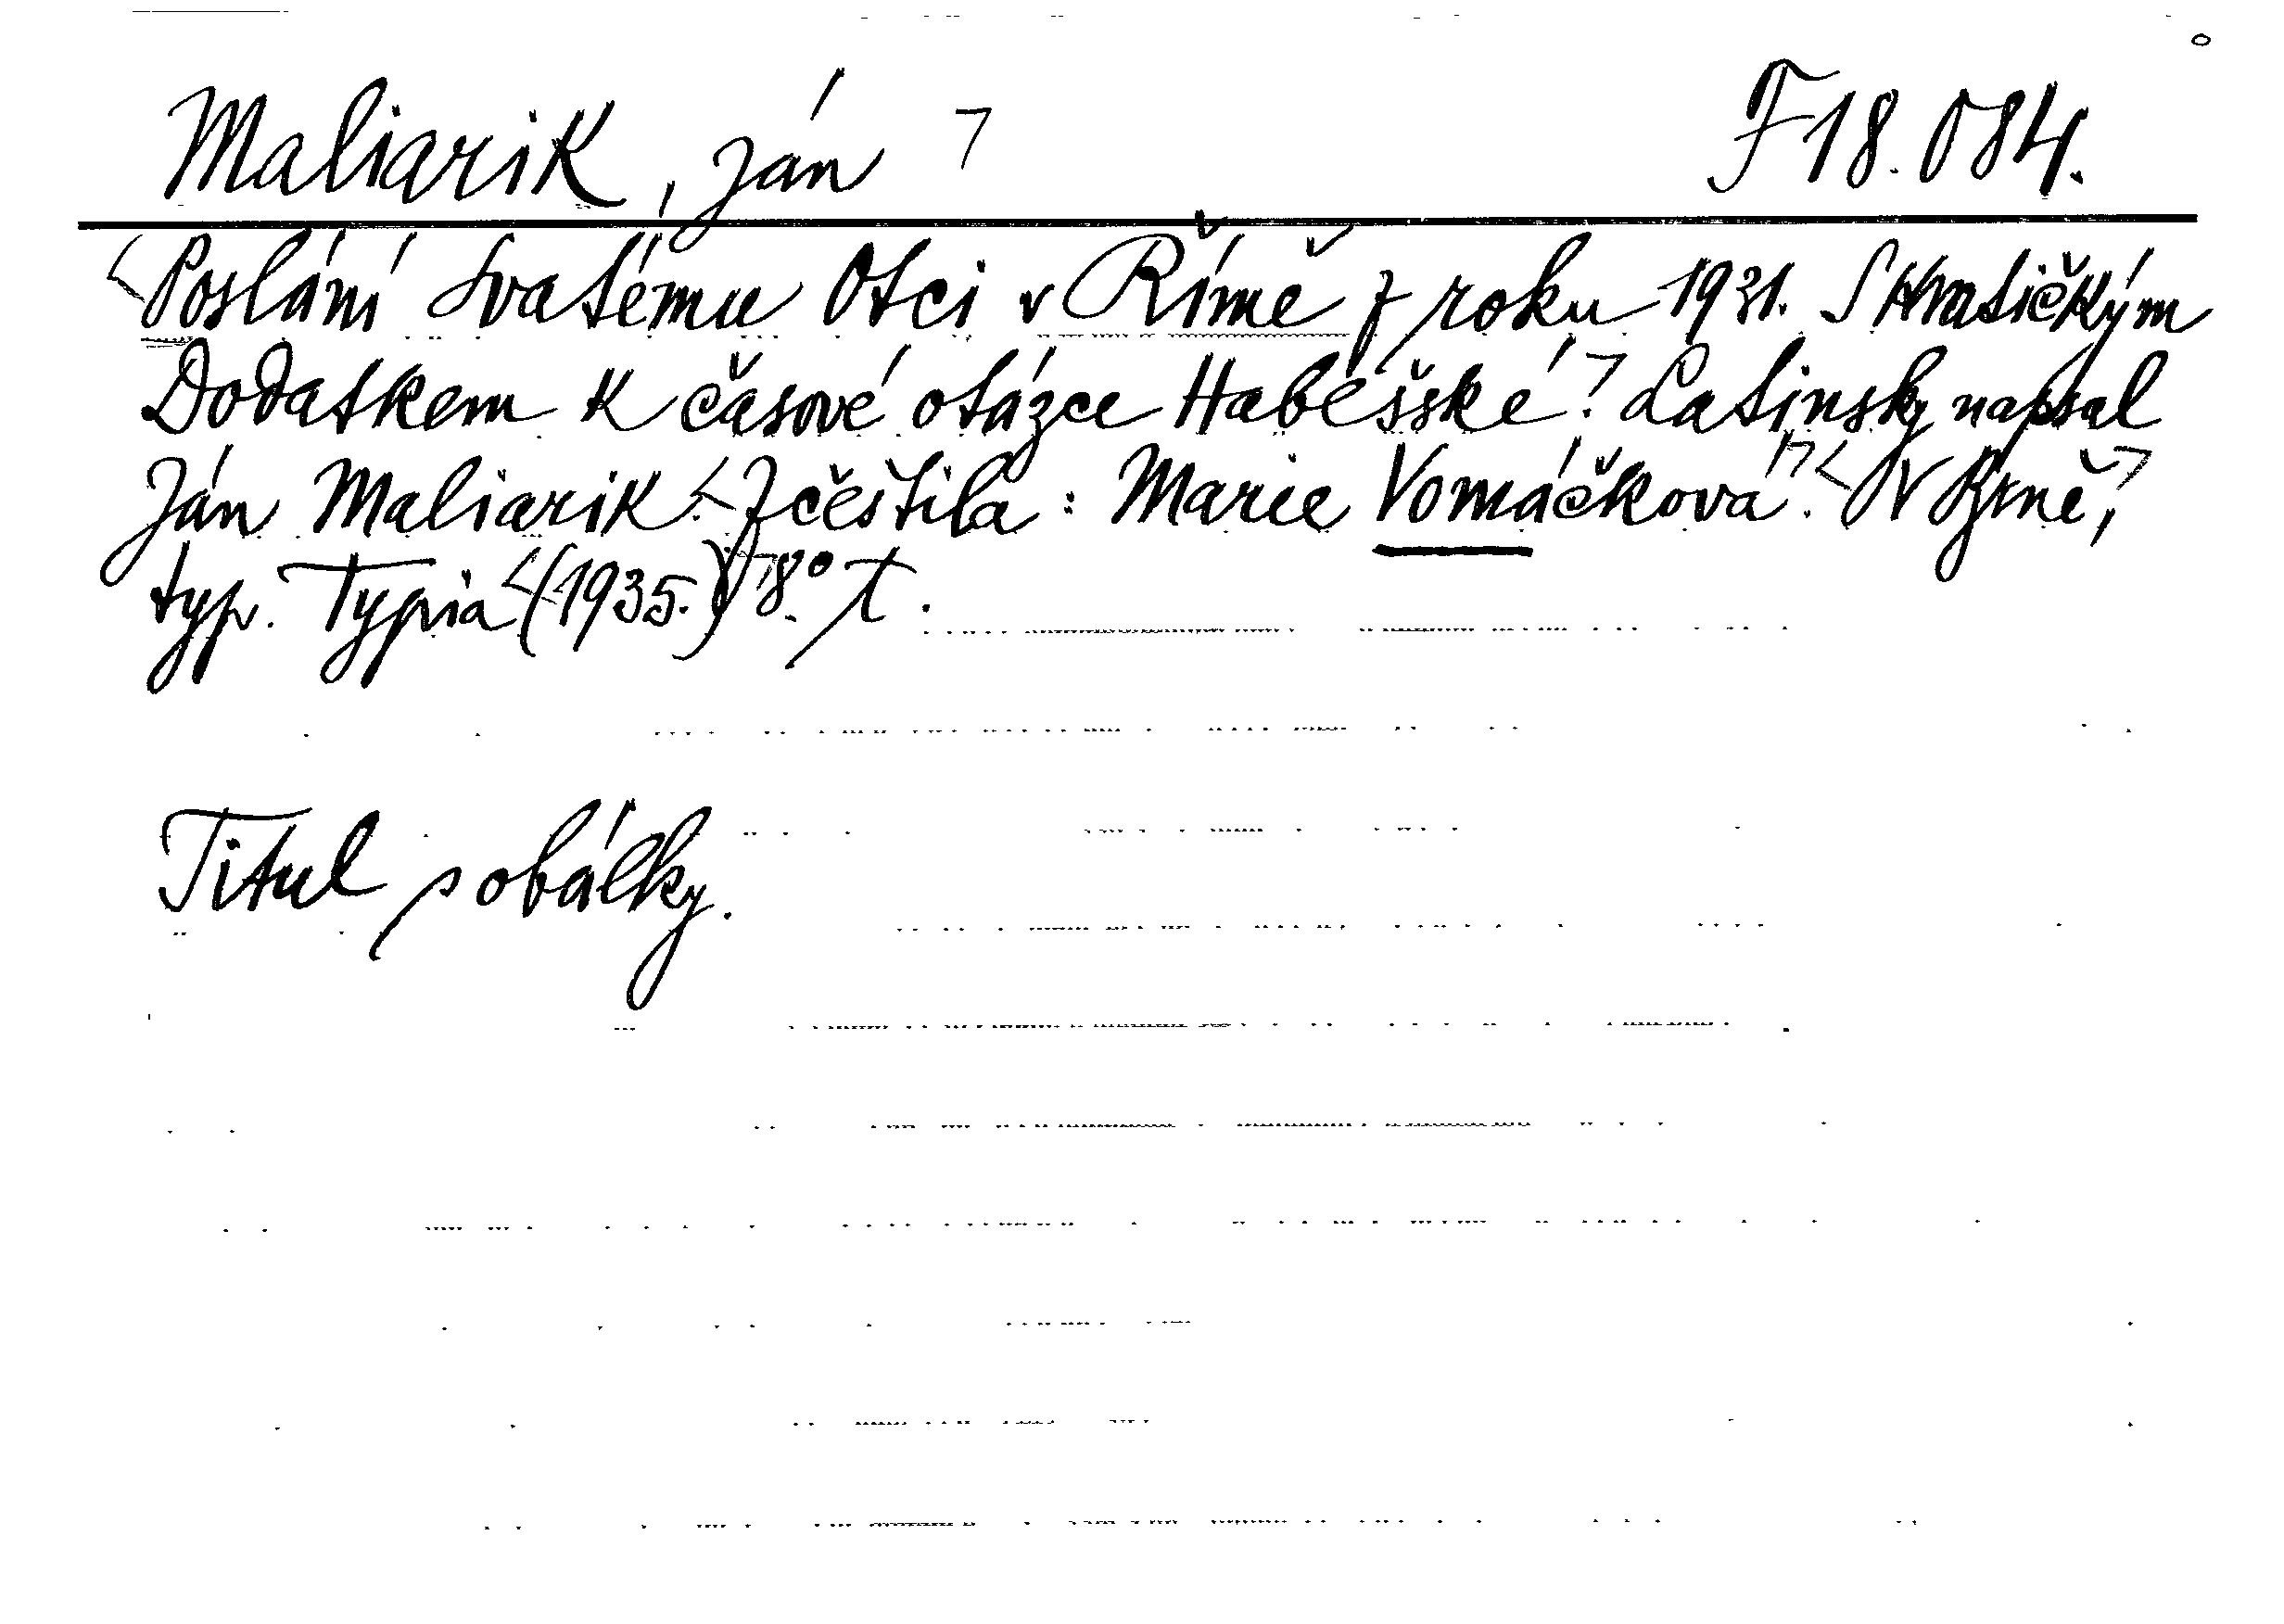 Maliarik, Ján F 18.084.
Poslání Svatému Otci v Římě z roku 1931. S Kratičkým
Dodatkem k časové otázce Habešské. Latinsky napsal
Ján Maliarik. Zčeštila: Marie Vomáčková. V Brně,
typ. Typia (1935.) 8° T.
Titul s obálky.